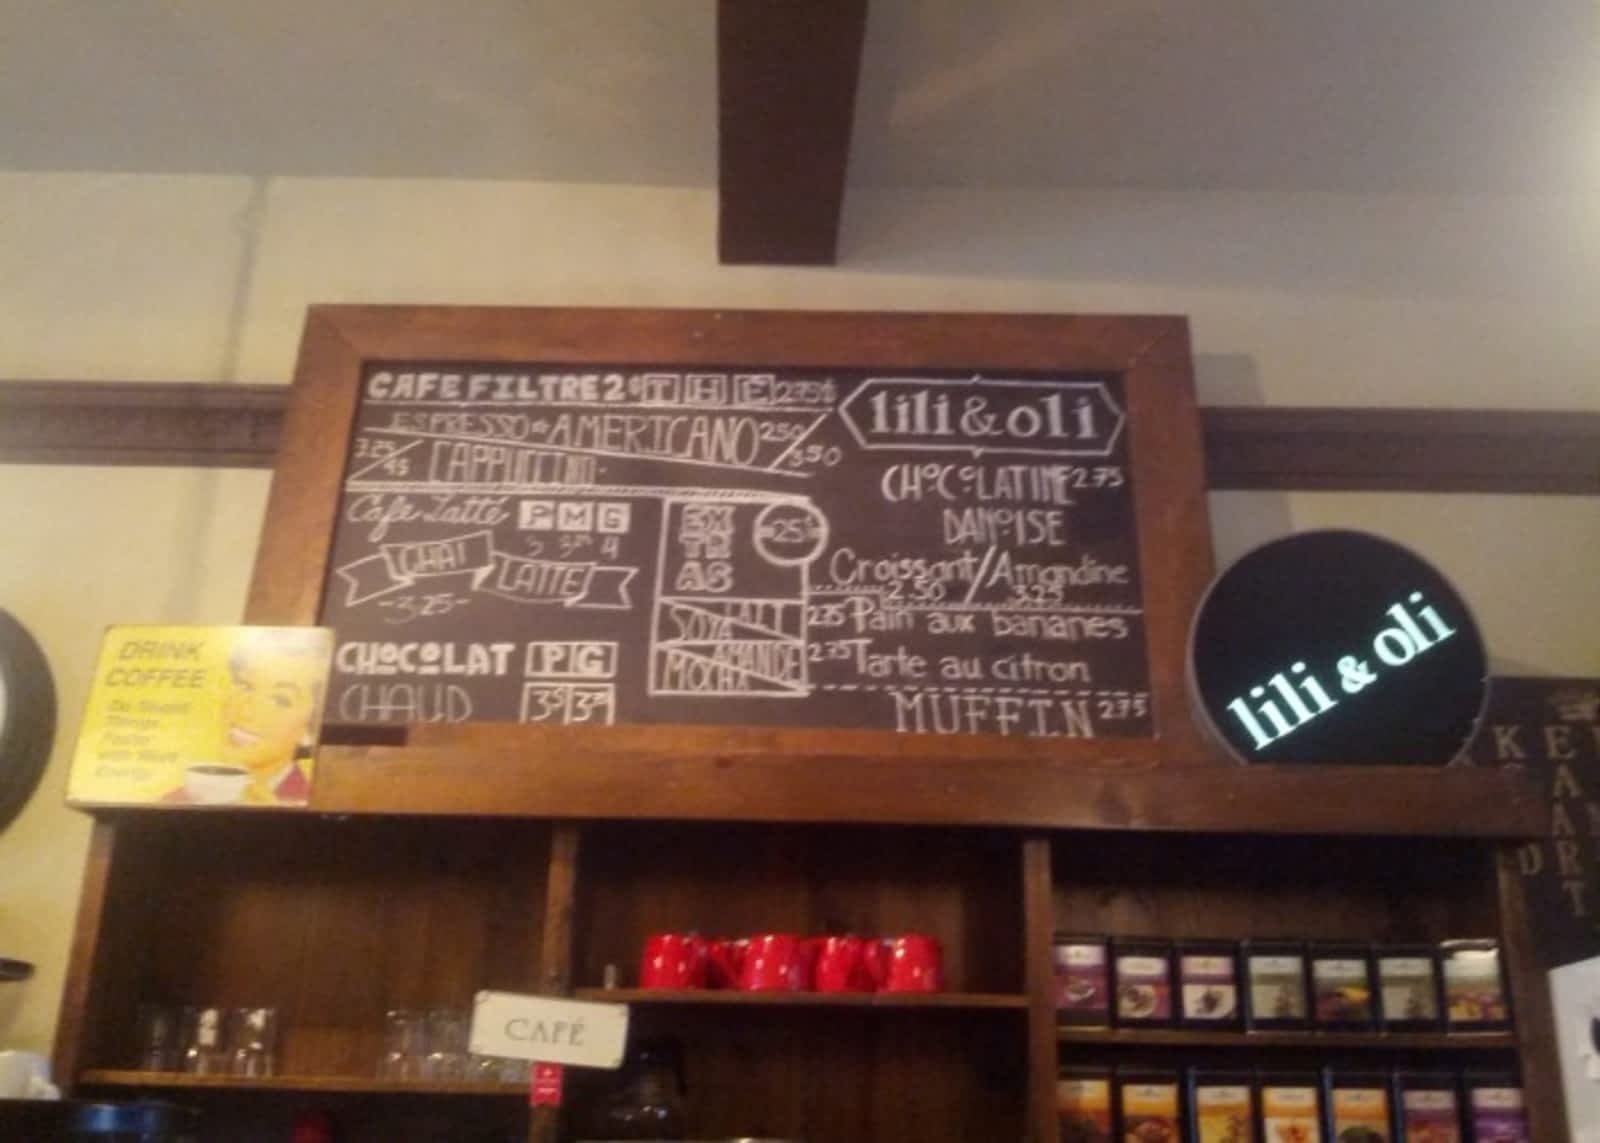 CAFE FILTRE 2$ THÉ 2.75$
ESPRESSO * AMERICANO 2.50/3.50
3.25/4$ CAPPUCCINO
Cafe Latté P M G
4
CHAI
LATTE
-3.25-
CHOCOLAT P G
CHAUD 3$
EX
TR
AS
25¢
SOYA LAIT
MOKA AMANDE
lili & oli
CHOCOLATINE 2.75
DANOISE
Croissant / Amandine
2.50 3.25
2.75 Pain aux bananes
2.75 Tarte au citron
MUFFIN 2.75
DRINK
COFFEE
Do Stupid
Things
Faster
with More
Energy
lili & oli
CAFÉ